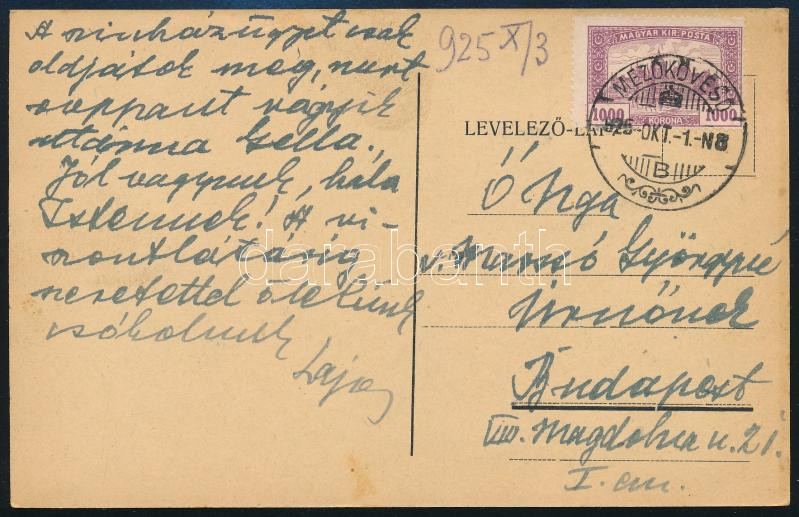 A színházügyet csak
oldjátok meg, mert
roppant vágyik
utánna Gella.
Jól vagyunk, hála
Istennek! A vi-
szontlátásig
szeretettel ölelünk
csókolunk
Lajos
925 X/3
MAGYAR KIR. POSTA
1000 KORONA 1000
MEZŐKÖVESD
925-OKT.-1.-N8
B
LEVELEZŐ-LAP
Ő Nga
Györgyné
Úrnőnek
Budapest
VIII. Magdolna u. 21.
I. em.
darabanth